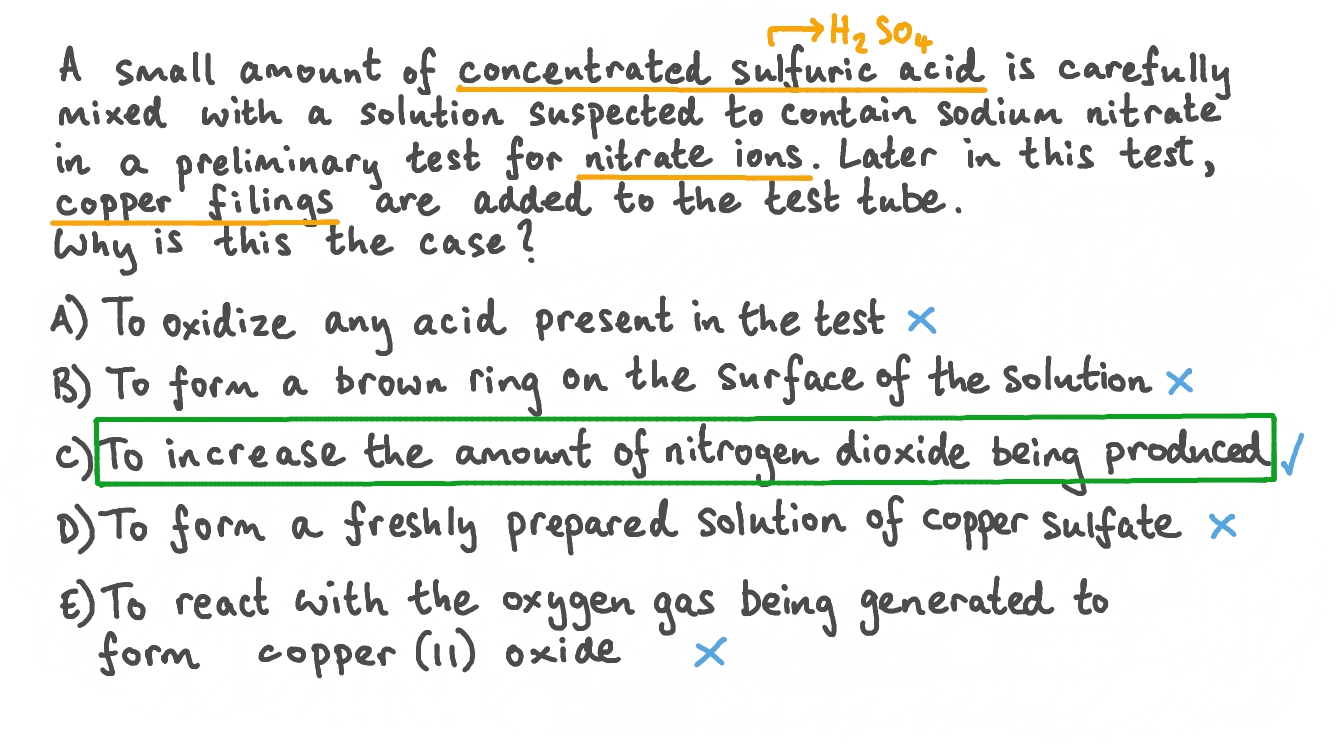 → H₂SO₄
A small amount of concentrated sulfuric acid is carefully
mixed with a solution suspected to contain sodium nitrate
in a preliminary test for nitrate ions. Later in this test,
copper filings are added to the test tube.
Why is this the case?
A) To oxidize any acid present in the test ×
B) To form a brown ring on the surface of the solution ×
C) To increase the amount of nitrogen dioxide being produced ✓
D) To form a freshly prepared solution of copper sulfate ×
E) To react with the oxygen gas being generated to
form copper (II) oxide ×